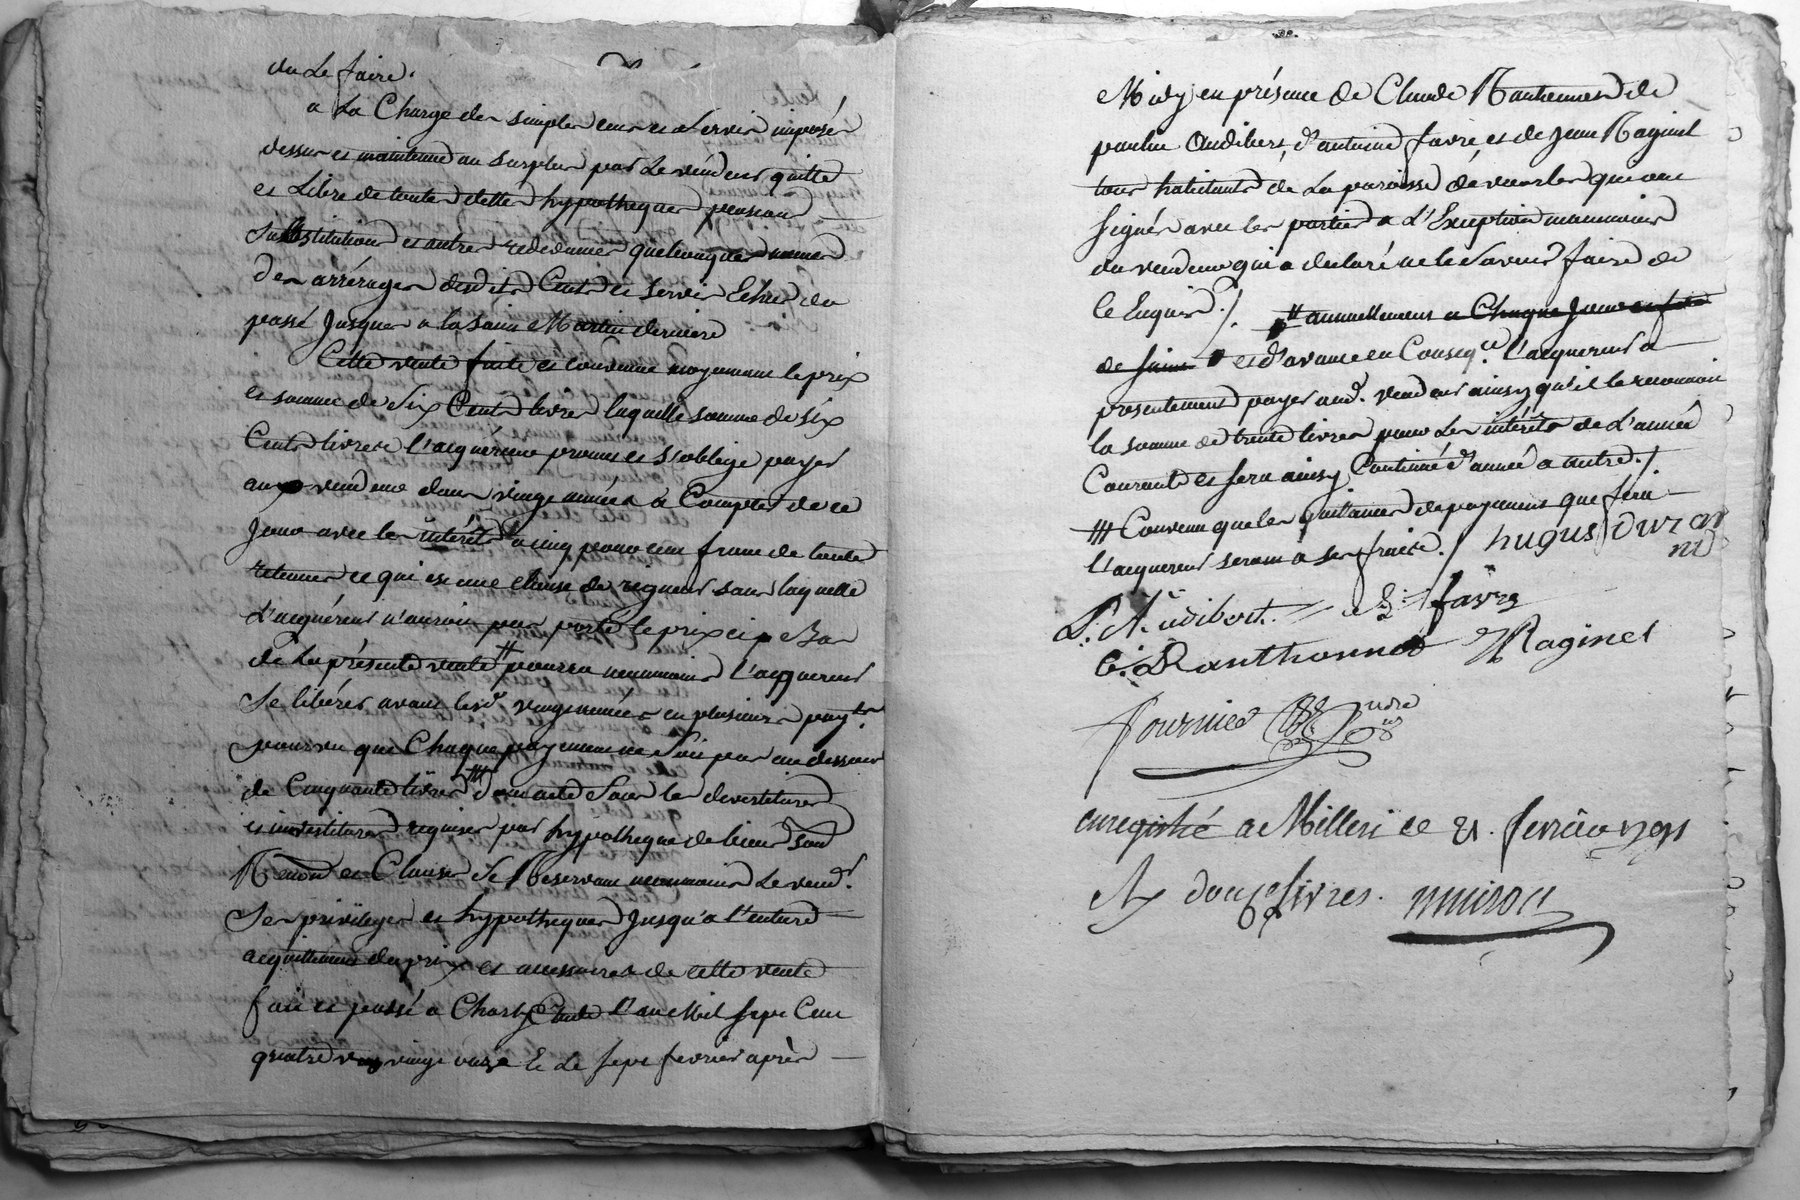 du Le faire.
a La Charge des simples cens et Servis imposés
dessus et maintenue au surplus par Le vendeur quitte
et Libre de toutes dettes hypotheques pension
substitution et autres redevances quelconques
des arrérages desdits Cens et Servis Echus du
passé Jusques a la Saint Martin derniere
Cette vente faite et convenue moyennant le prix
et somme de Six Cents livres laquelle somme de six
Cents livres l'acquéreur promet et s'oblige payer
aux vendeur dans vingt années a Compter de ce
Jour avec les intérêts a cinq pour cent franc de toute
retenue ce qui est une clause de rigueur sans laquelle
L'acquéreur n'auroit pas porté le prix si bas
de La présente vente # pourra neanmoins L'acquereur
se libérer avant lesd. vingt années en plusieurs payts.
pourvu que Chaque payement ne Soit pas au dessous
de Cinquante livres ### dont acte Sous les devestitures
et investitures requises par hypotheque de biens
Renon et Clauses Se Reservant neanmoins Le vendr.
Ses privileges et hypotheques Jusqu'a l'entiere
acquittement du prix et accessoires de cette vente
fait et passé a L'an Mil Sept Cent
quatre vingt onze Et Le Sept fevrier après
Midy en présence de Claude Ranthonnet de
paulin Audibert, d'antoine favre, et de Jean Raginel
tous habitants de La paroisse de qui ont
Signés avec les parties a L'Exception neanmoins
du vendeur qui a declaré ne le Savoir faire de
ce Enquis ./. # annuellement a Chaque Jour
et d'avance en Conseqce. L'acquereur a
presentement payer aud. vendeur ainsy qu'il le reconnoit
la somme de trente livres pour Les intérêts de L'année
Courante et sera ainsy Continué d'année a autre ./.
### Convenu que les quittances de payements que fera
L'acquereur seront a ses frais ./. hugues Duran
nt
P. Audibert. a. favre
C. Ranthonnet J Raginel
Fournier
enregistré a Milleri ce 21. fevrier 1791
Rx douze livres.